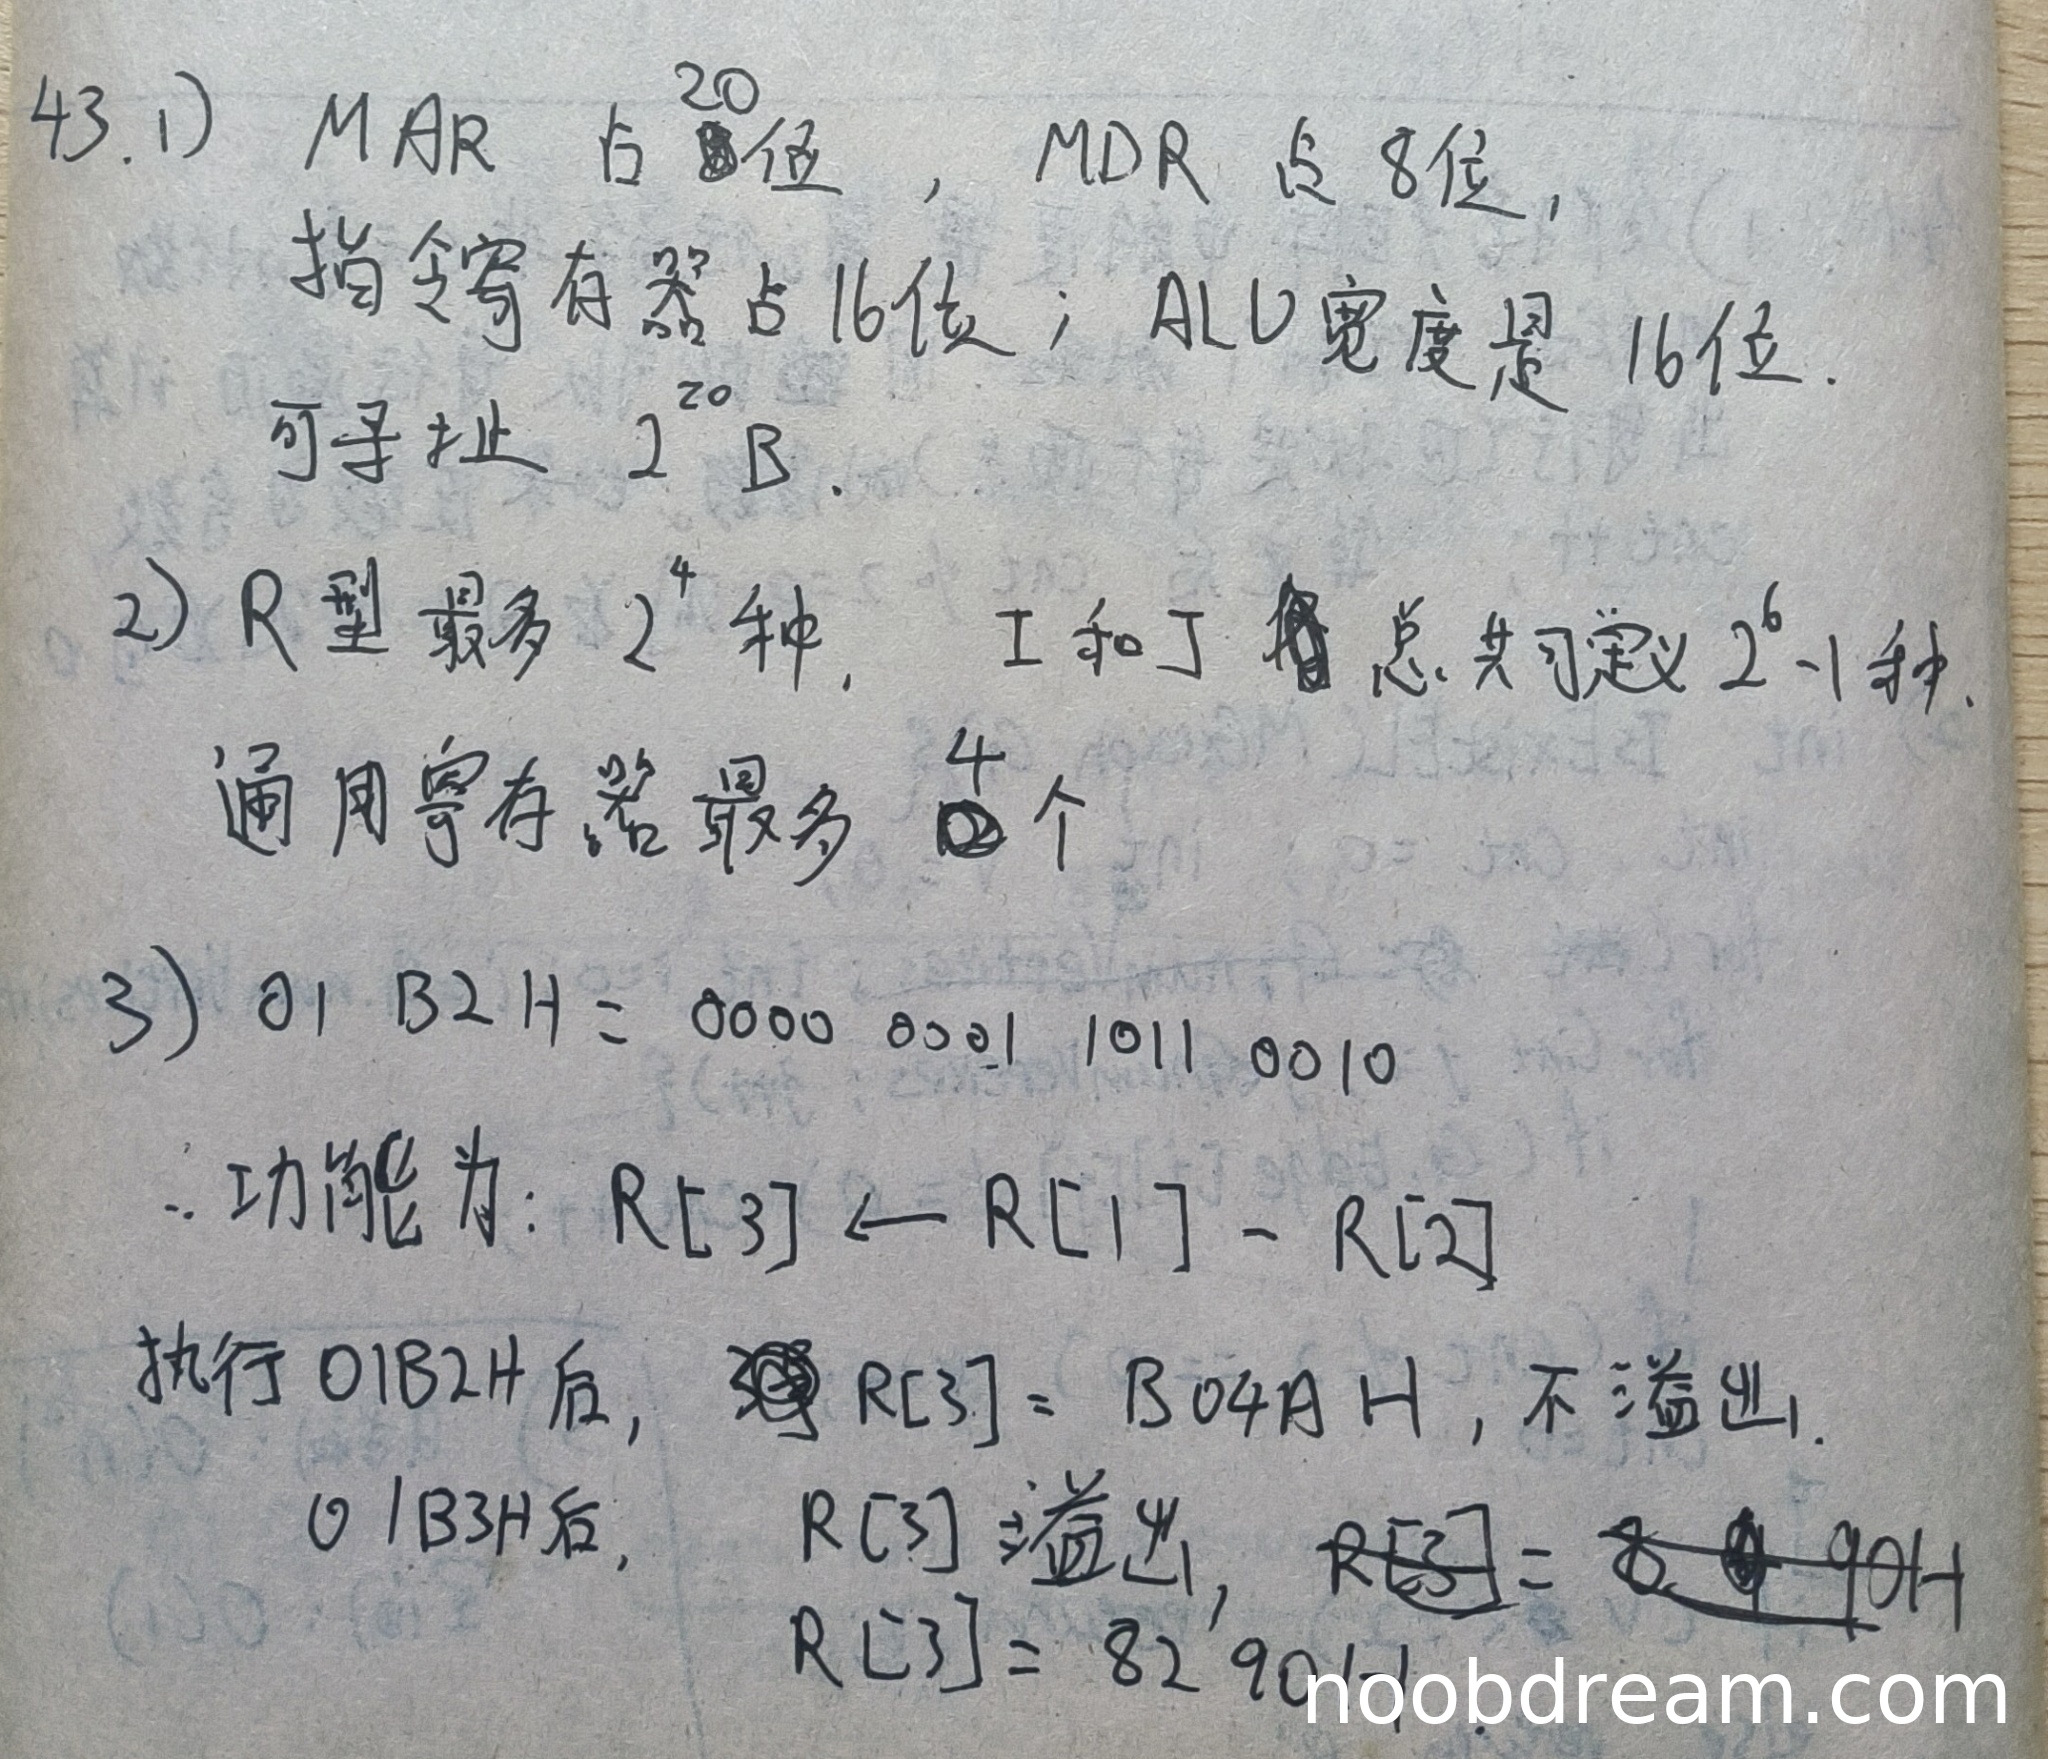 43. 1) MAR 占 20 位, MDR 占 8位,
指令寄存器占16位; ALU宽度是 16位.
可寻址 2^20 B.
2) R型最多 2^4 种, I和J 总共可定义 2^6-1种.
通用寄存器最多 4 个
3) 01 B2H = 0000 0001 1011 0010
∴功能为: R[3] ← R[1] - R[2]
执行01B2H后, R[3] = B04AH, 不溢出.
01B3H后, R[3]溢出, R[3] = 8 90H
R[3] = 8290H
noobdream.com